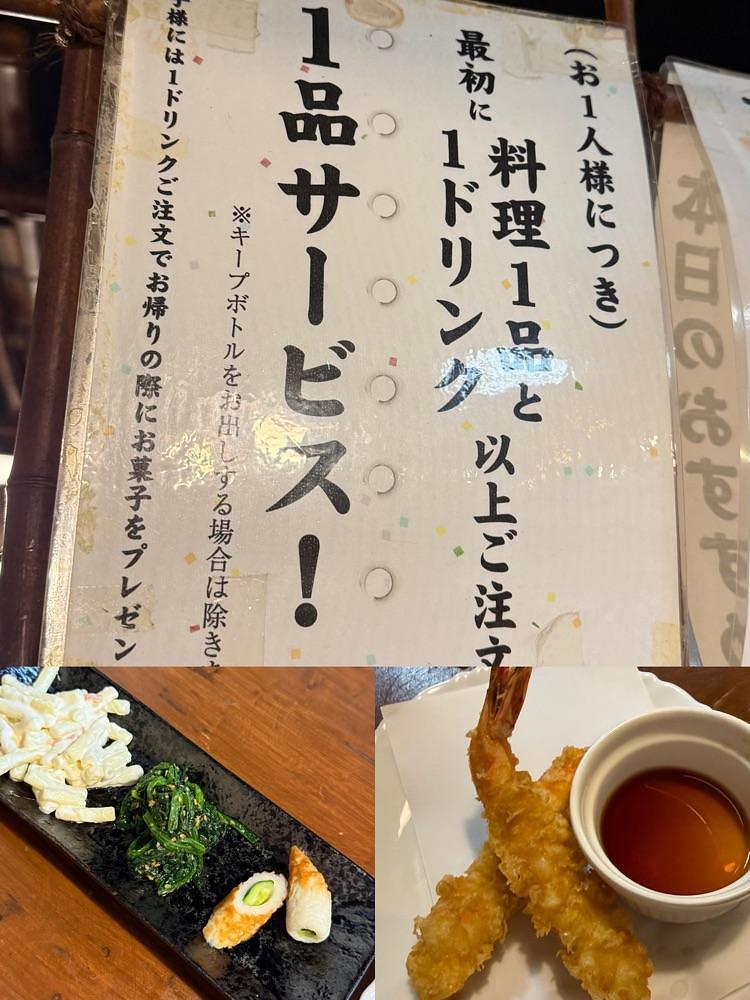 (お1人様につき)
料理1品と
最初に1ドリンク
以上ご注文
1品サービス!
※キープボトルをお出しする場合は除きま
子様には1ドリンクご注文でお帰りの際にお菓子をプレゼン
本日のおすすめ